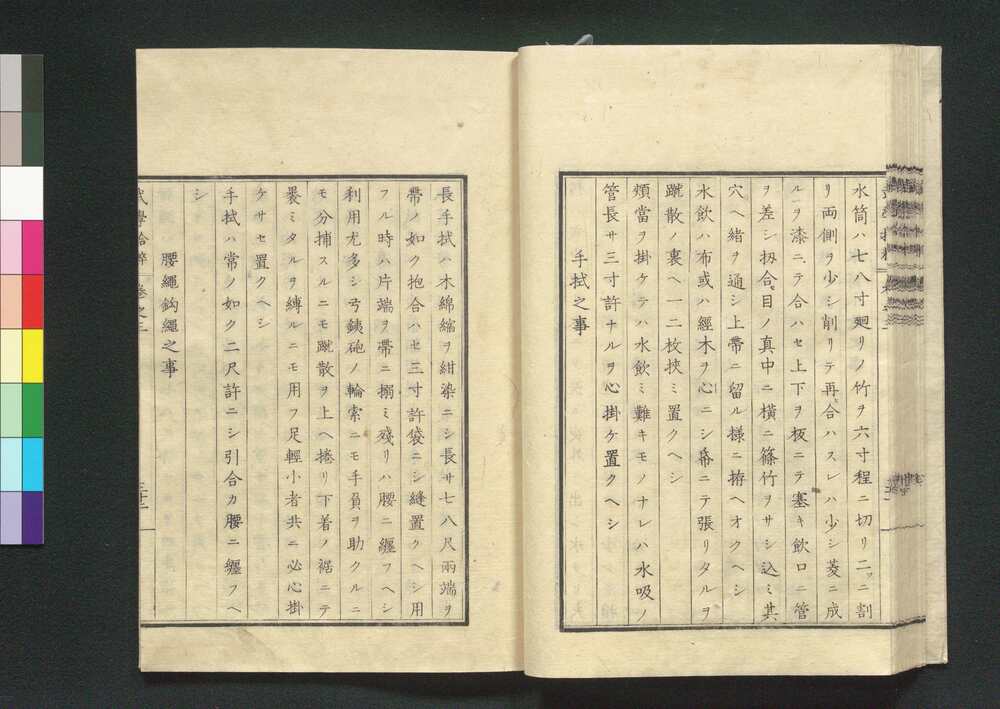 水筒ハ七八寸廻リノ竹ヲ六寸程ニ切リ二ッニ割
リ両側ヲ少シ削リテ再合ハスレハ少シ菱ニ成
ルヲ漆ニテ合ハセ上下ヲ板ニテ塞キ飲口ニ管
ヲ差シ扨合目ノ真中ニ横ニ篠竹ヲサシ込ミ其
穴ヘ緒ヲ通シ上帶ニ留ル様ニ拵ヘオクヘシ
水飲ハ布或ハ經木ヲ心ニシ幕ニテ張リタルヲ
蹴散ノ裏ヘ一二枚挾ミ置クヘシ
頬當ヲ掛ケテハ水飲ミ難キモノナレハ水吸ノ
管長サ三寸許ナルヲ心掛ケ置クヘシ
手拭之事
長手拭ハ木綿縮ヲ紺染ニシ長サ七八尺兩端ヲ
帶ノ如ク抱合ハセ三寸許袋ニシ縫置クヘシ用
フル時ハ片端ヲ帶ニ搦ミ殘リハ腰ニ纏フヘシ
利用尤多シ弓銕砲ノ輪索ニモ手負ヲ助クルニ
モ分捕スルニモ蹴散ヲ上ヘ捲リ下着ノ裾ニテ
褁ミタルヲ縛ルニモ用フ足輕小者共ニ必心掛
ケサセ置クヘシ
手拭ハ常ノ如ク二尺許ニシ引合カ腰ニ纏フヘ
シ
腰繩鈎繩之事
武學拾粹 卷之三